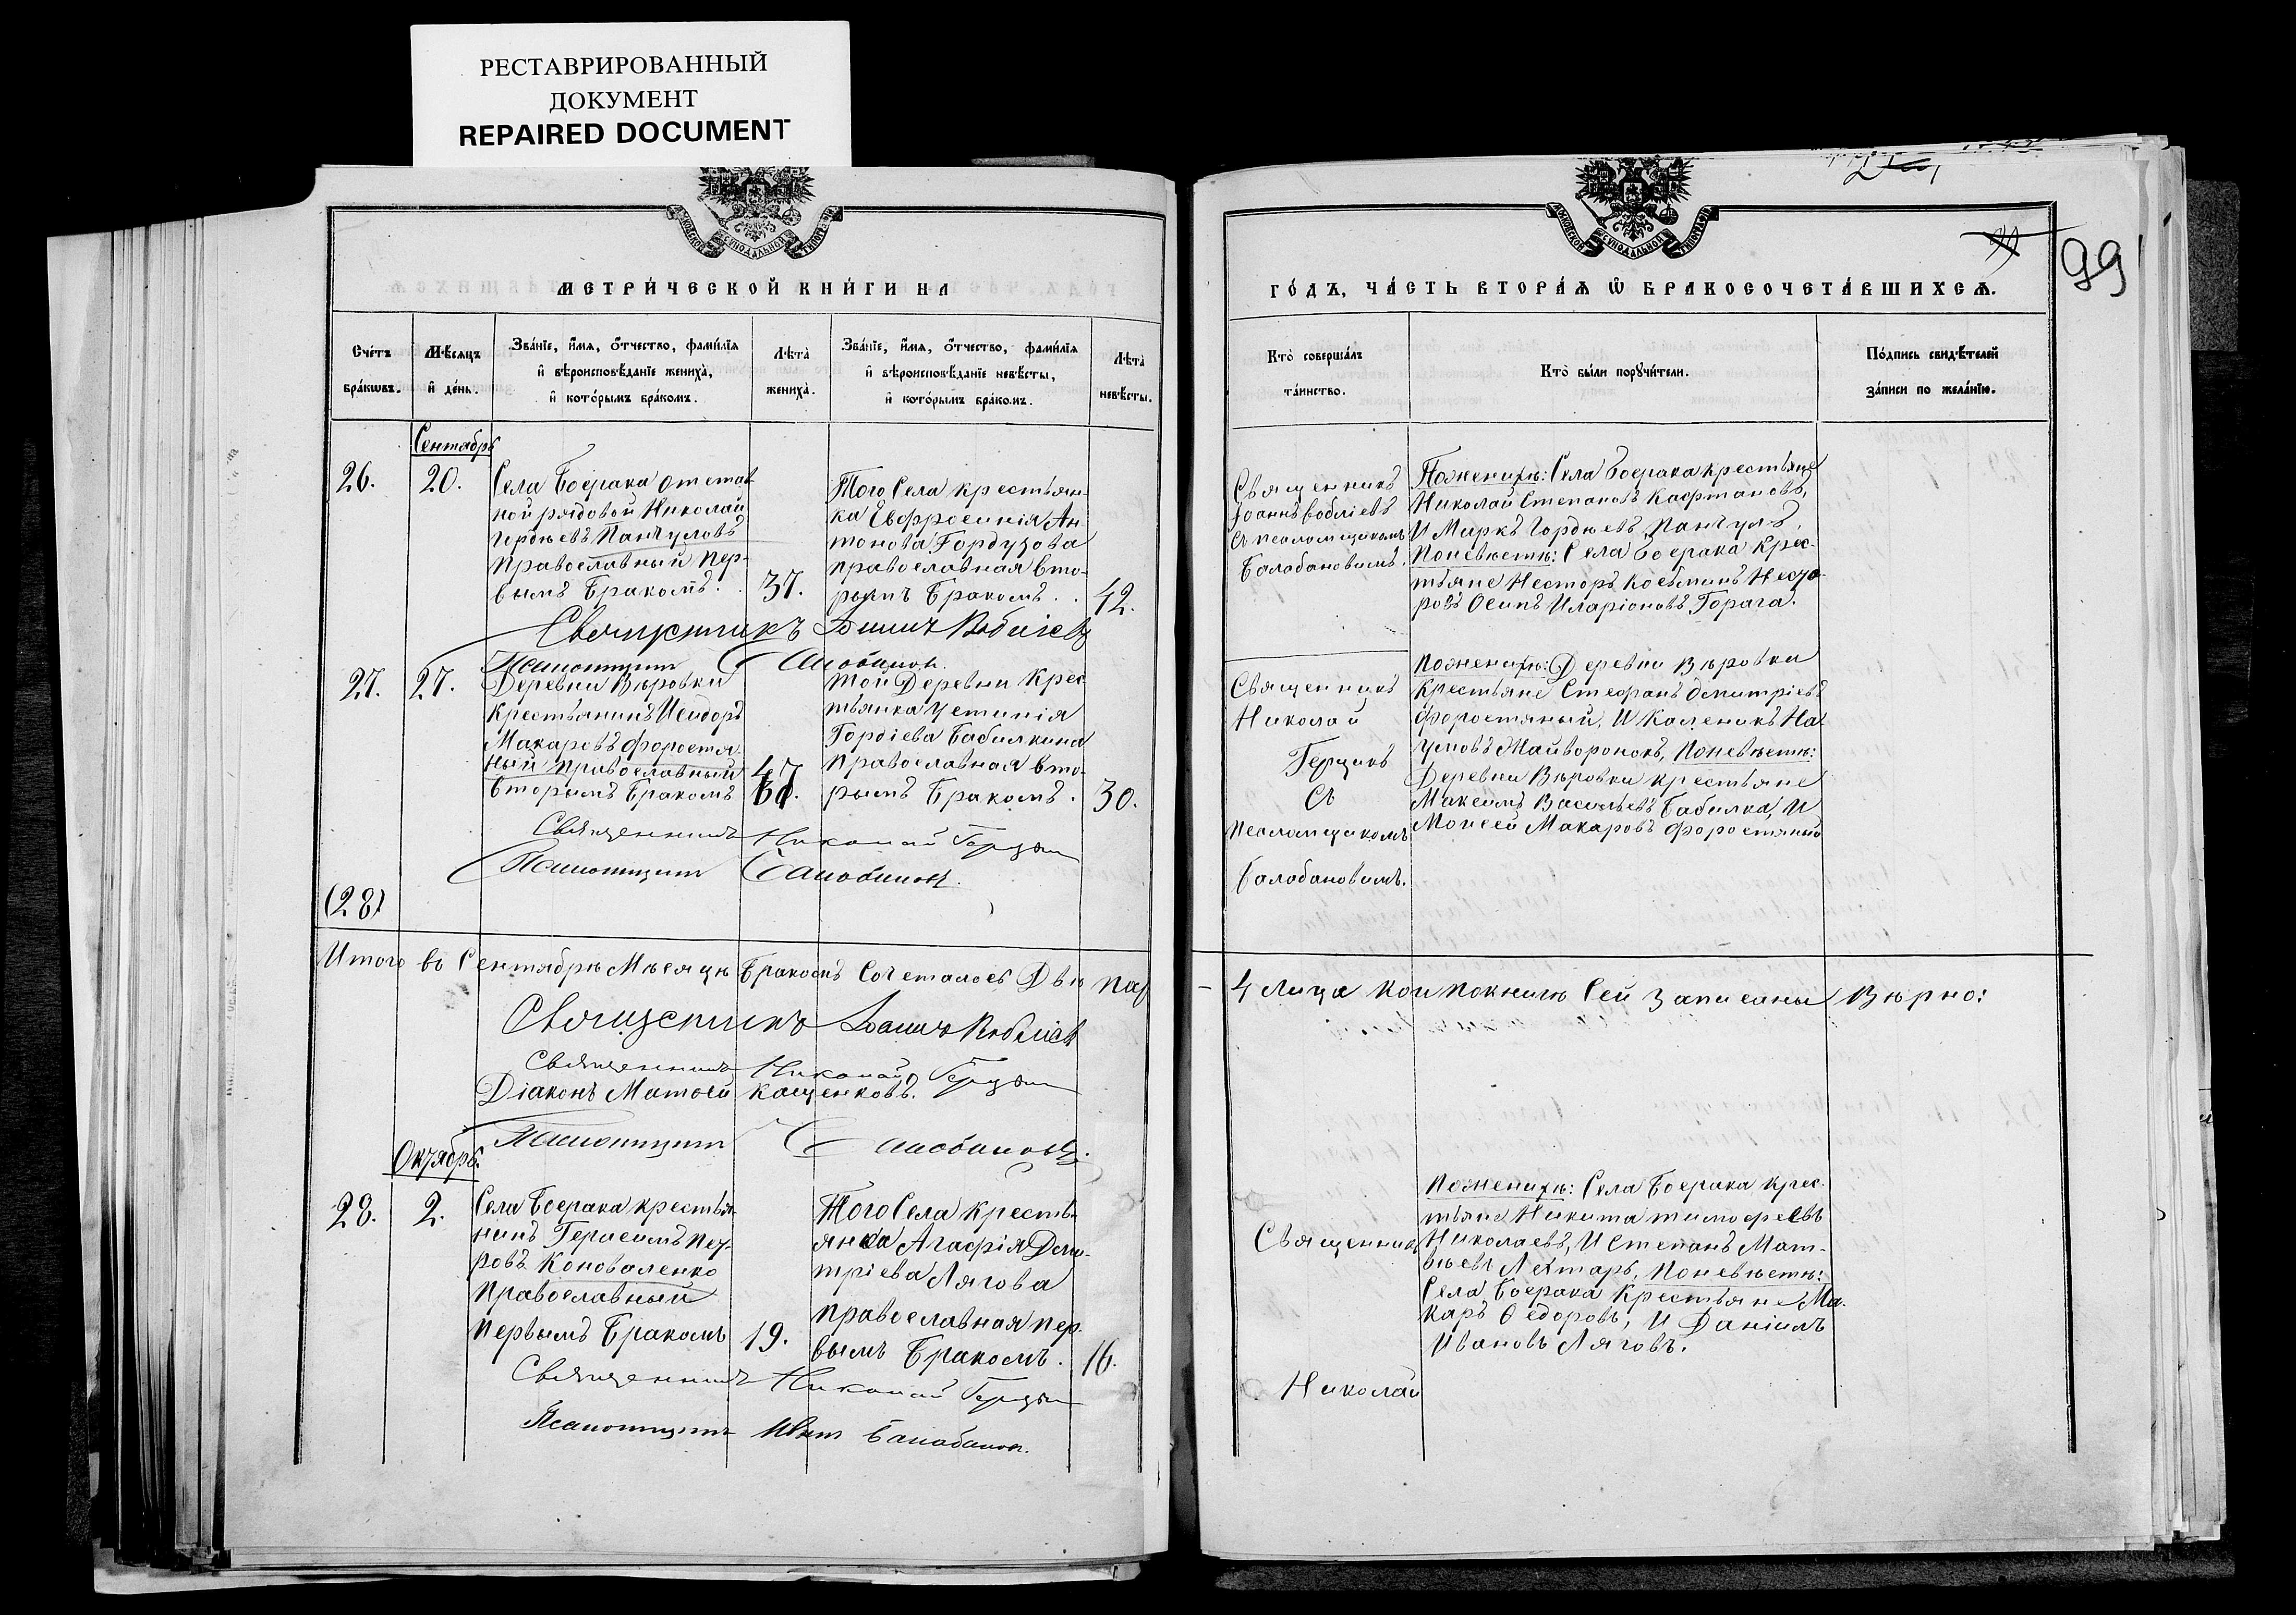 РЕСТАВРИРОВАННЫЙ
ДОКУМЕНТ
REPAIRED DOCUMENT
МОСКОВСКОЙ СѴНОДАЛЬНОЙ ТИПОГРАФІИ
МЕТРИ́ЧЕСКОЙ КНИ́ГИ НА
Сче́тъ бра́кѡвъ.
Мѣ́сяцъ и҆ де́нь.
Зва́нїе, и҆́мя, ѻ҆́тчество, фами́лїя
и҆ вѣроисповѣ́данїе жениха̀,
и҆ кото́рымъ бра́комъ.
Лѣ́та̀ жениха̀.
Зва́нїе, и҆́мя, ѻ҆́тчество, фами́лїя
и҆ вѣроисповѣ́данїе невѣ́сты,
и҆ кото́рымъ бра́комъ.
Лѣ́та̀ невѣ́сты.
Сентябрь
26.
20.
Села Боерака отстав
ной рядовой Николай
Гордѣевъ Панчуловъ
Православный пер-
вымъ Бракомъ.
37.
Того Села крестьян-
ка Евфросинія Ан
тонова Гордузова
православная вто-
рымъ Бракомъ.
42.
Священникъ Іоаннъ
Псаломщикъ Балабановъ
27.
27.
Деревни Вѣровки
Крестьянинъ Исидоръ
Макаровъ Форостя
ный православный
вторымъ Бракомъ
47
Той Деревни Крес
тьянка Устинія
Гордіева Бабилкина
православная вто-
рымъ Бракомъ.
30.
Священникъ Николай Герцикъ
Псаломщикъ Балабановъ.
(28)
Итого въ Сентябрѣ Мѣсяцѣ Бракомъ Сочеталось Двѣ пар
Священникъ Іоаннъ
Священникъ Николай Герцикъ
Діаконъ Матѳей Кащенковъ.
Псаломщикъ Балабановъ.
Октябрь.
28.
2.
Села Боерака крестья
нинъ Герасимъ Пет-
ровъ Коноваленко
Православный
первымъ Бракомъ
19.
Того Села Кресть-
янка Агафія Дми-
тріева Лягова
православная пер-
вымъ Бракомъ.
16.
Священникъ Николай Герцикъ
Псаломщикъ Иванъ Балабановъ.
МОСКОВСКОЙ СѴНОДАЛЬНОЙ ТИПОГРАФІИ
99
ГО́ДЪ, ЧА́СТЬ ВТОРА́Я Ѽ БРАКОСОЧЕТА́ВШИХСЯ.
Кто̀ соверша́лъ
та́инство.
Кто̀ бы́ли порꙋчи́тели.
По́дпись свидѣ́телей
за́писи по жела́нїю.
Священникъ
Іоаннъ
Съ псаломщикомъ
Балабановымъ.
По женихѣ: Села Боерака крестьяне
Николай Степановъ Кафтановъ,
И Маркъ Гордѣевъ Панчулъ.
По невѣстѣ: Села Боерака Крес-
тьяне Несторъ Косьминъ
Осипъ Иларіоновъ Горача.
Священникъ
Николай
Герцикъ
Съ
псаломщикомъ
Балабановымъ.
По женихѣ: Деревни Вѣровки
Крестьяне Стефанъ Дмитріевъ
Форостяный, И Каленикъ На
умовъ Майворонок, По невѣстѣ:
Деревни Вѣровки крестьяне
Максимъ Васильевъ Бабилка, И
Моисей Макаровъ Форостяный
- 4 лица кои по книгѣ Сей Записаны Вѣрно:
Священникъ
Николай
По женихѣ: Села Боерака крес-
тьяне Никита Тимофеевъ
Николаевъ, И Степанъ Мат-
вѣевъ Лехтарь, По невѣстѣ:
Села Боерака Крестьяне Ма-
каръ Ѳедоровъ, И Даніилъ
Ивановъ Ляговъ.